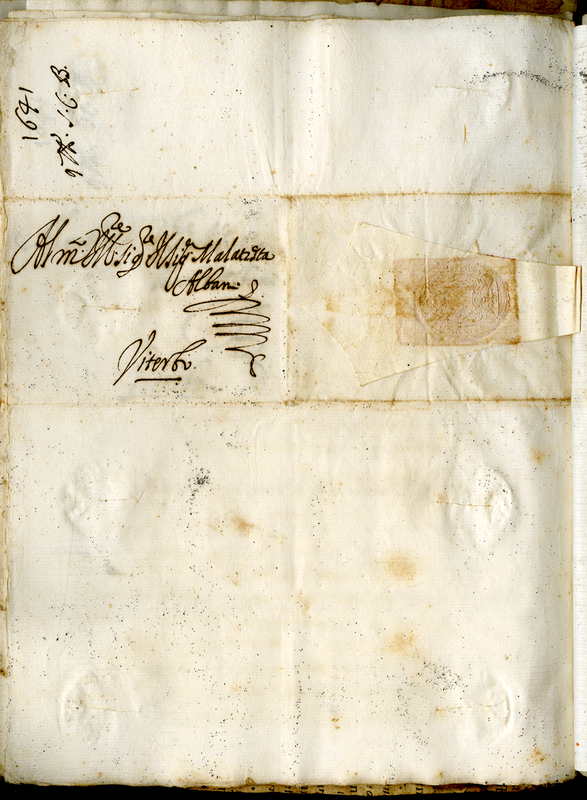 1641
9bre S. C. B.
Al m.to Ill.re Sig.re il Sig.r Malatesta
Albani
Viterbo.